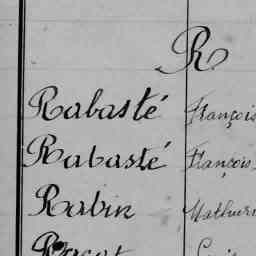 R
Rabasté François
Rabasté François
Rabin Mathuri